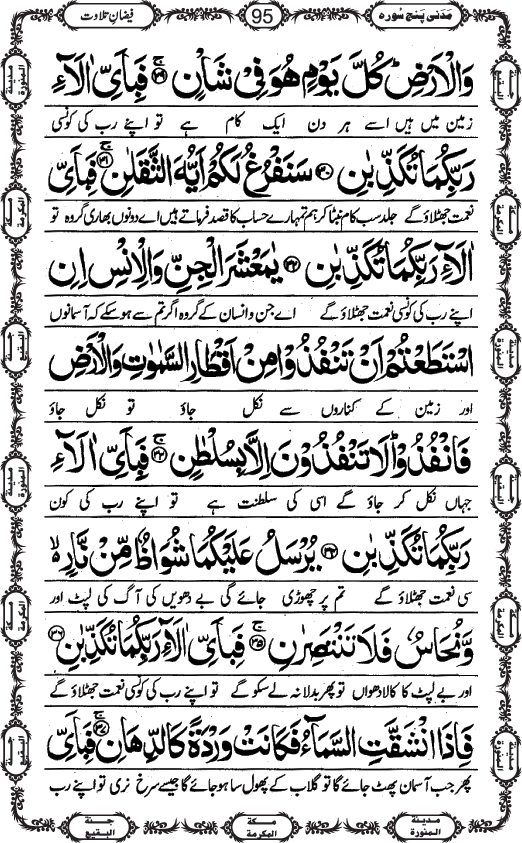 مَدَنی پنج سُورہ 95 فیضانِ تلاوت
وَالْاَرْضِ ؕ كُلَّ یَوْمٍ هُوَ فِیْ شَاْنٍ ۚ﴿۲۹﴾ فَبِاَیِّ اٰلَآءِ
زمین میں ہیں اسے ہر دن ایک کام ہے تو اپنے رب کی کونسی
رَبِّكُمَا تُكَذِّبٰنِ ﴿۳۰﴾ سَنَفْرُغُ لَكُمْ اَیُّهَ الثَّقَلٰنِ ۚ﴿۳۱﴾ فَبِاَیِّ
نعمت جھٹلاؤ گے جلد سب کام نبٹا کر ہم تمہارے حساب کا قصد فرماتے ہیں اے دونوں بھاری گروہ تو
اٰلَآءِ رَبِّكُمَا تُكَذِّبٰنِ ﴿۳۲﴾ یٰمَعْشَرَ الْجِنِّ وَالْاِنْسِ اِنِ
اپنے رب کی کونسی نعمت جھٹلاؤ گے اے جن و انسان کے گروہ اگر تم سے ہو سکے کہ آسمانوں
اسْتَطَعْتُمْ اَنْ تَنْفُذُوْا مِنْ اَقْطَارِ السَّمٰوٰتِ وَالْاَرْضِ
اور زمین کے کناروں سے نکل جاؤ تو نکل جاؤ
فَانْفُذُوْا ؕ لَا تَنْفُذُوْنَ اِلَّا بِسُلْطٰنٍ ۚ﴿۳۳﴾ فَبِاَیِّ اٰلَآءِ
جہاں نکل کر جاؤ گے اسی کی سلطنت ہے تو اپنے رب کی کون
رَبِّكُمَا تُكَذِّبٰنِ ﴿۳۴﴾ یُرْسَلُ عَلَیْكُمَا شُوَاظٌ مِّنْ نَّارٍ ۙ
سی نعمت جھٹلاؤ گے تم پر چھوڑی جائے گی بے دھویں کی آگ کی لپٹ اور
وَّنُحَاسٌ فَلَا تَنْتَصِرٰنِ ۚ﴿۳۵﴾ فَبِاَیِّ اٰلَآءِ رَبِّكُمَا تُكَذِّبٰنِ ﴿۳۶﴾
اور بے لپٹ کا کالا دھواں تو پھر بدلا نہ لے سکو گے تو اپنے رب کی کونسی نعمت جھٹلاؤ گے
فَاِذَا انْشَقَّتِ السَّمَآءُ فَكَانَتْ وَرْدَةً كَالدِّهَانِ ۚ﴿۳۷﴾ فَبِاَیِّ
پھر جب آسمان پھٹ جائے گا تو گلاب کے پھول سا ہو جائے گا جیسے سرخ نری تو اپنے رب
مدینة المنورة
مكة المكرمة
جنة البقيع